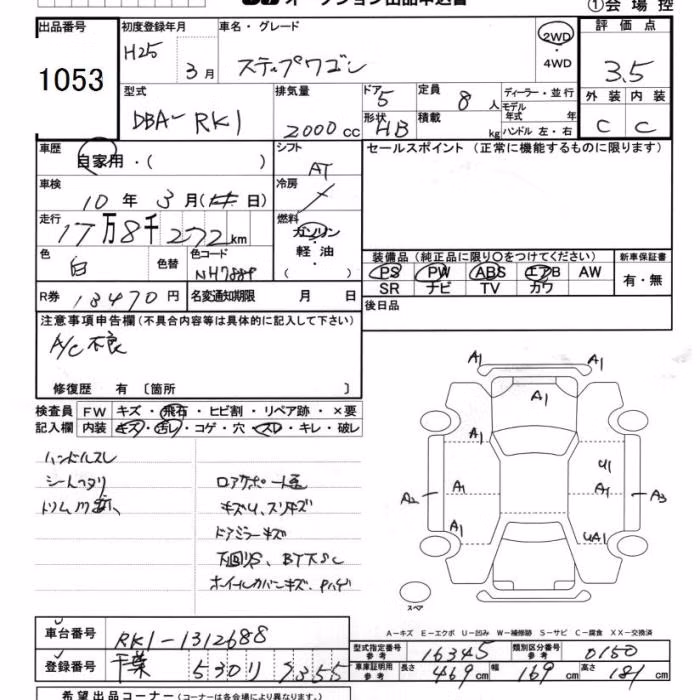 オークション出品申込書
①会場控
出品番号 1053
初度登録年月 H25 3月
車名・グレード ステップワゴン
2WD・4WD
評価点 3.5
外装 C 内装 C
型式 DBA- RK1
排気量 2000cc
ドア 5 形状 HB
定員 8人 積載 kg
ディーラー・並行
モデル年式 年式
ハンドル 左・右
車歴 自家用・( )
シフト AT
セールスポイント (正常に機能するものに限ります)
車検 10年 3月( 日)
冷房
走行 17万8千272km
燃料 ガソリン・軽油・( )
色 白 色替 色コード
装備品(純正品に限り○をつけてください)
PS PW ABS エアB AW
SR ナビ TV カワ
新車保証書 有・無
R券 13470円
名変通知期限 月 日
後日品
注意事項申告欄(不具合内容等は具体的に記入して下さい)
A/C不良
修復歴 有 〔箇所 〕
検査員 FW キズ・飛石・ヒビ割・リペア跡・×要
記入欄 内装 キズ・汚レ・コゲ・穴・スレ・キレ・破レ
ハンドルスレ
シートヘタリ
キズU、スリキズ
ドアミラーキズ
ホイールカバーキズ、
A1 A1
A1
A1 U1
A2 A1 A1 A3
A1 UA1
スペア
A-キズ E-エクボ U-凹み W-補修跡 S-サビ C-腐食 XX-交換済
車台番号 RK1-1312688
登録番号 千葉 530 り 9355
型式指定番号 参考 16345 類別区分番号 参考 0150
車庫証明用 参考 長さ 469cm 幅 169cm 高さ 181cm
希望出品コーナー(コーナーは各会場により異なります)